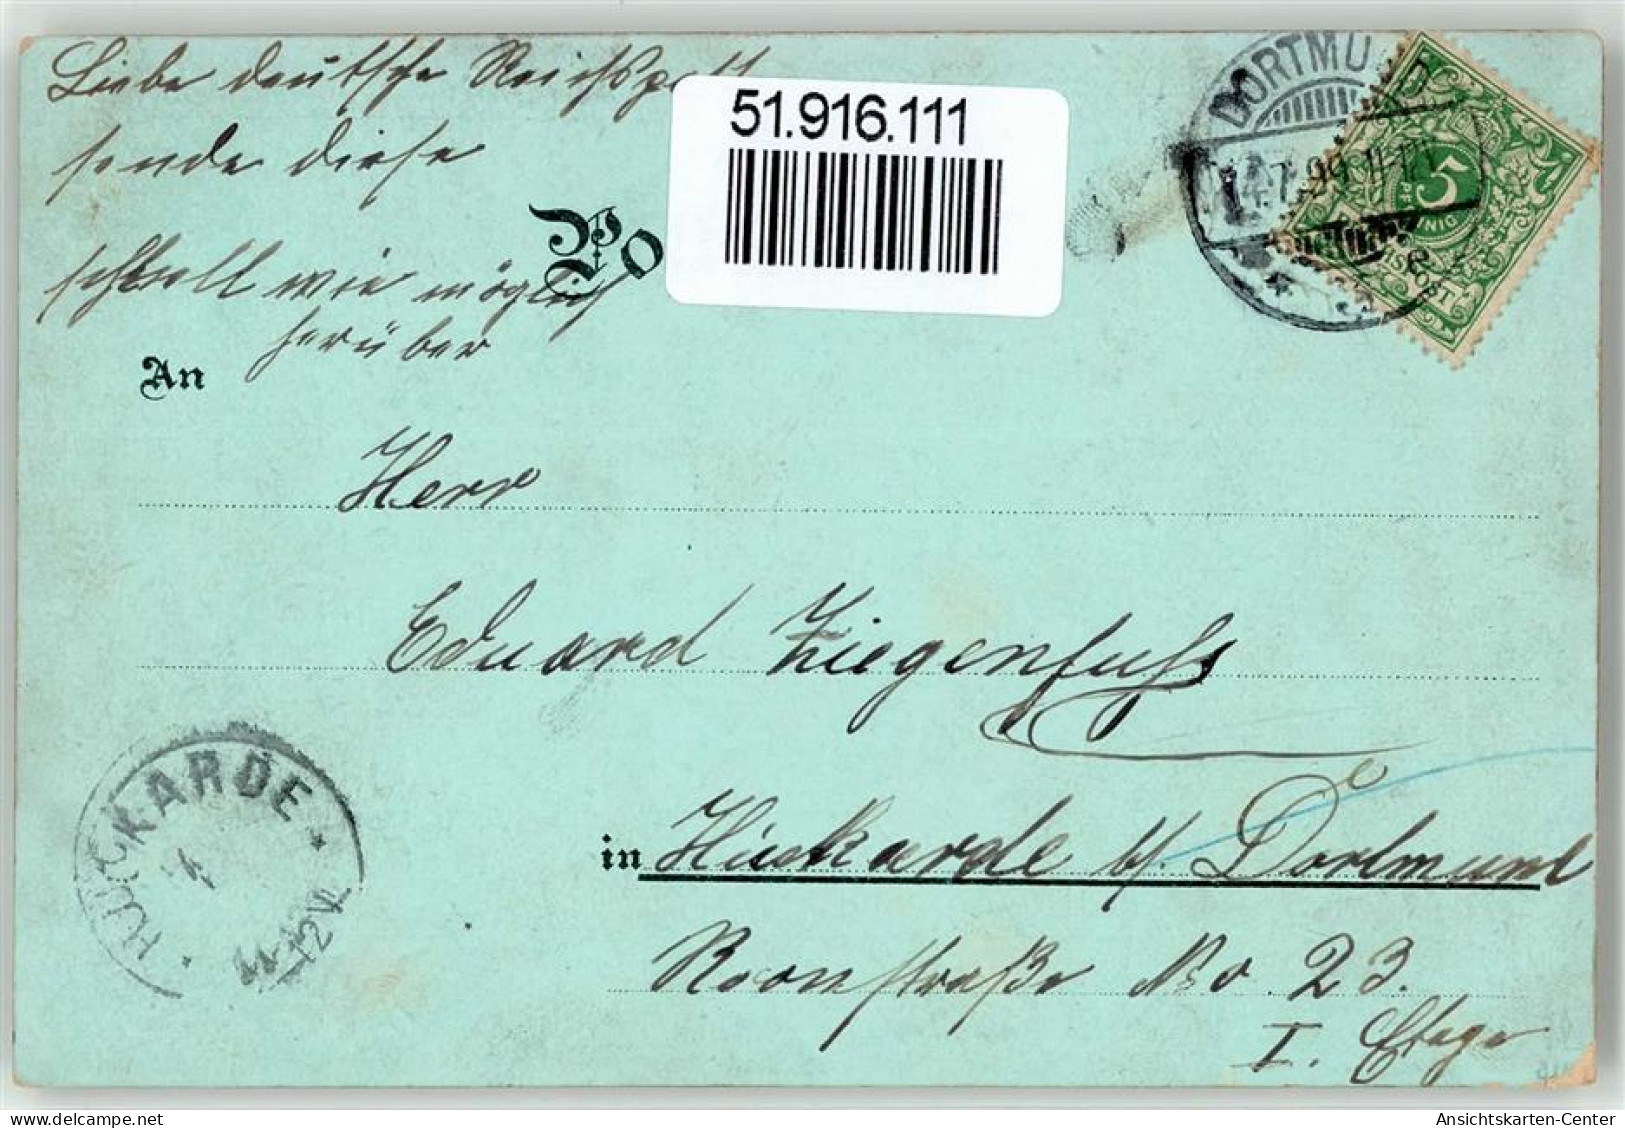 Liebe deutsche Reichspost
sende diese
schnell wie möglich
herüber
51.916.111
Po
DORTMUND
14.7.99.11-12
e
5
PFENNIG
REICHSPOST
An
Herr
Eduard Ziegenfuß
in Huckarde b/ Dortmund
Roonstraße No. 23.
I. Etage
HUCKARDE
11-12V
Ansichtskarten-Center